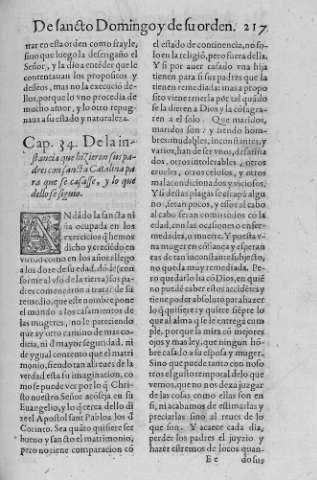 De sancto Domingo y de su orden. 217
trar en esta orden como frayle,
sino que luego la desengaño el
Señor, y la dio a entéder que le
contentauan los propositos y
desseos, mas no la execució de-
llos, porque lo vno procedia de
mucho amor, y lo otro repug-
naua a su estado y naturaleza.
Cap. 34. De la in-
stancia que hizieron sus pa-
dres con sancta Catalina pa
ra que se casasse, y lo que
dello se siguio.
ANdádo la sancta ni
ña ocupada en los
exercicios q̃ hemos
dicho y creciédo en
virtud como en los años llego
a los doze de su edad, dóde (con
forme al vso de la tierra) sus pa
dres començaron a tratar de su
remedio, que este nombre pone
el mundo a los casamientos de
las mugeres, no le pareciendo
que ay otro camino de mas co-
dicia, ni d̃ mayor seguridad, ni
de ygual contento que el matri
monio, siendo tan al reues de la
verdad esta su imaginacion, co
mo se puede ver por lo q̃ Chri-
sto nuestro Señor acóseja en su
Euangelio, y lo q̃ cerca dello di
ze el Apostol sant Pablo a los d̃
Corinto. Sea quáto quisiere ser
bueno y sancto el matrimonio,
pero no tiene comparacion có
el estado de continencia, no so-
lo en la religió, pero fuera della.
Y si por auer casado vna hija
tienen para si sus padres que la
tienen remediada: mas a propo
sito viene tenerla por tal quádo
se la dieren a Dios y la cósagra-
ren a el solo. Que maridos,
maridos son: y siendo hom-
bres mudables, inconstantes, y
varios, han de ser vnos, dessatina
dos, otros intolerables, otros
crueles, otros celosos, y otros
mal acondicionados y viciosos.
Y si destas plagas se escapá algu
no, seran pocos, y essos al cabo
al cabo seran comissidos có la
edad, con las ocasiones o enfer-
medades, o muerte. Y puesta v-
na muger en criança y esperan
ças de tan inconstante subjecto,
no queda muy remediada. Pe-
ro quedarlo ha có Dios, en quié
no puede caber estos accidétes y
tiene poder absoluto para hazer
lo q̃ quisiere y quiere siépre lo
que al alma q̃ se le entrega cum
ple, porque la mira có mejores
ojos y mas ley, que ningun hó-
bre casado a su esposa y muger.
Sino que puede tanto con noso
tros el gusto temporal delo que
vemos, que no nos dexa juzgar
de las cosas como ellas son en
si, ni acabamos de estimarlas y
preciarlas sino al reues de lo
que son. Y acaece cada dia,
perder los padres el juyzio y
hazer estremos de locos quan-
Ee dosus